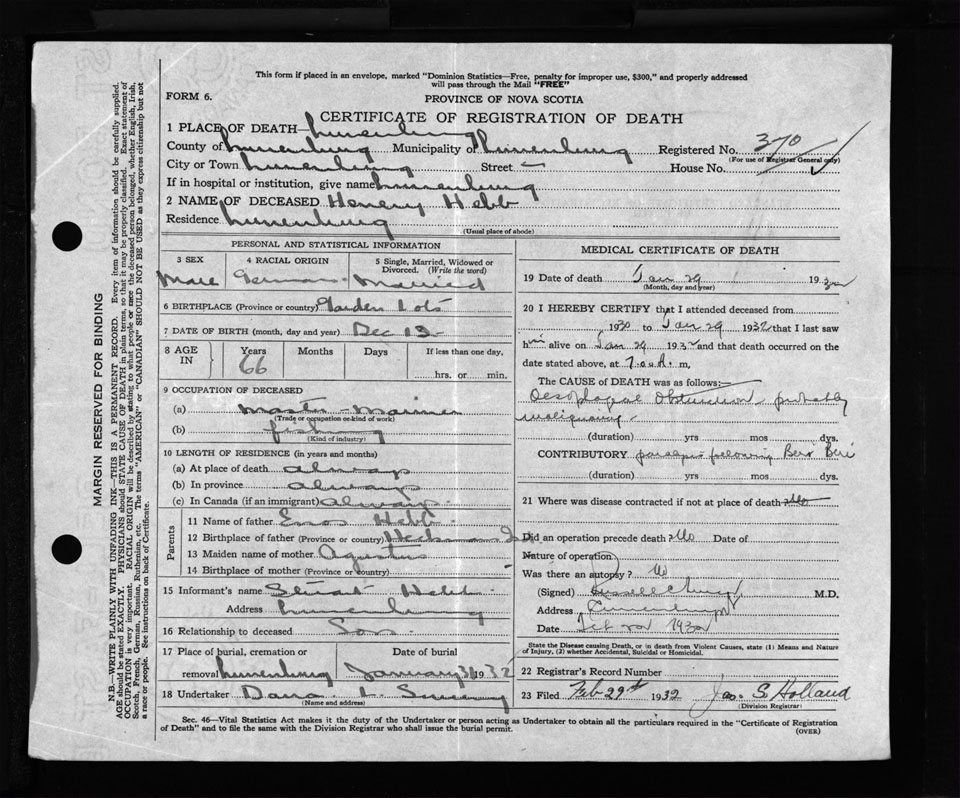 This form if placed in an envelope, marked "Dominion Statistics—Free, penalty for improper use, $300," and properly addressed
will pass through the Mail "FREE"
FORM 6.
PROVINCE OF NOVA SCOTIA
CERTIFICATE OF REGISTRATION OF DEATH
1 PLACE OF DEATH— Lunenburg
County of Lunenburg Municipality of Lunenburg Registered No. 370
(For use of Registrar General only)
City or Town Lunenburg Street — House No.
If in hospital or institution, give name Lunenburg
2 NAME OF DECEASED Henery Hebb
Residence Lunenburg
(Usual place of abode)
PERSONAL AND STATISTICAL INFORMATION
3 SEX Male
4 RACIAL ORIGIN German
5 Single, Married, Widowed or Divorced. (Write the word) Married
6 BIRTHPLACE (Province or country) Garden Lots
7 DATE OF BIRTH (month, day and year) Dec 13
8 AGE IN Years 66 Months Days If less than one day, hrs. or min.
9 OCCUPATION OF DECEASED
(a) Master Mariner
(Trade or occupation or kind of work)
(b) fishing
(Kind of industry)
10 LENGTH OF RESIDENCE (in years and months)
(a) At place of death always
(b) In province always
(c) In Canada (if an immigrant) always
Parents
11 Name of father Enos Hebb
12 Birthplace of father (Province or country) Heckmans Isl
13 Maiden name of mother Agustus
14 Birthplace of mother (Province or country)
15 Informant's name Stuart Hebb
Address Lunenburg
16 Relationship to deceased Son
17 Place of burial, cremation or removal Lunenburg Date of burial January 31 1932
18 Undertaker Dana L.
(Name and address)
MEDICAL CERTIFICATE OF DEATH
19 Date of death Jan 29 1932
(Month, day and year)
20 I HEREBY CERTIFY that I attended deceased from
1930 to Jan 29 1932 that I last saw
him alive on Jan 29 1932 and that death occurred on the
date stated above, at 7 a.m,
The CAUSE of DEATH was as follows:—
Oesophageal Obstruction probably
malignancy
(duration) yrs mos dys.
CONTRIBUTORY following Beri Beri
(duration) yrs mos dys.
21 Where was disease contracted if not at place of death? No
Did an operation precede death? No Date of
Nature of operation
Was there an autopsy? No
(Signed) Russell M.D.
Address Lunenburg
Date Feb 1932
State the Disease causing Death, or in death from Violent Causes, state (1) Means and Nature
of Injury, (2) whether Accidental, Suicidal or Homicidal.
22 Registrar's Record Number
23 Filed Feb 29th 1932 Jas. S. Holland
(Division Registrar)
Sec. 46—Vital Statistics Act makes it the duty of the Undertaker or person acting as Undertaker to obtain all the particulars required in the "Certificate of Registration
of Death" and to file the same with the Division Registrar who shall issue the burial permit.
(OVER)
MARGIN RESERVED FOR BINDING
N.B.—WRITE PLAINLY WITH UNFADING INK—THIS IS A PERMANENT RECORD. Every item of information should be carefully supplied.
AGE should be stated EXACTLY. PHYSICIANS should STATE CAUSE OF DEATH in plain terms, so that it may be properly classified. Exact statement of
OCCUPATION is very important. RACIAL ORIGIN will be described by stating to what people or race the deceased person belonged, whether English, Irish,
Scotch, French, German, Russian, Ruthenian, etc. The terms "AMERICAN" or "CANADIAN" SHOULD NOT BE USED as they express citizenship but not
a race or people. See instructions on back of Certificate.